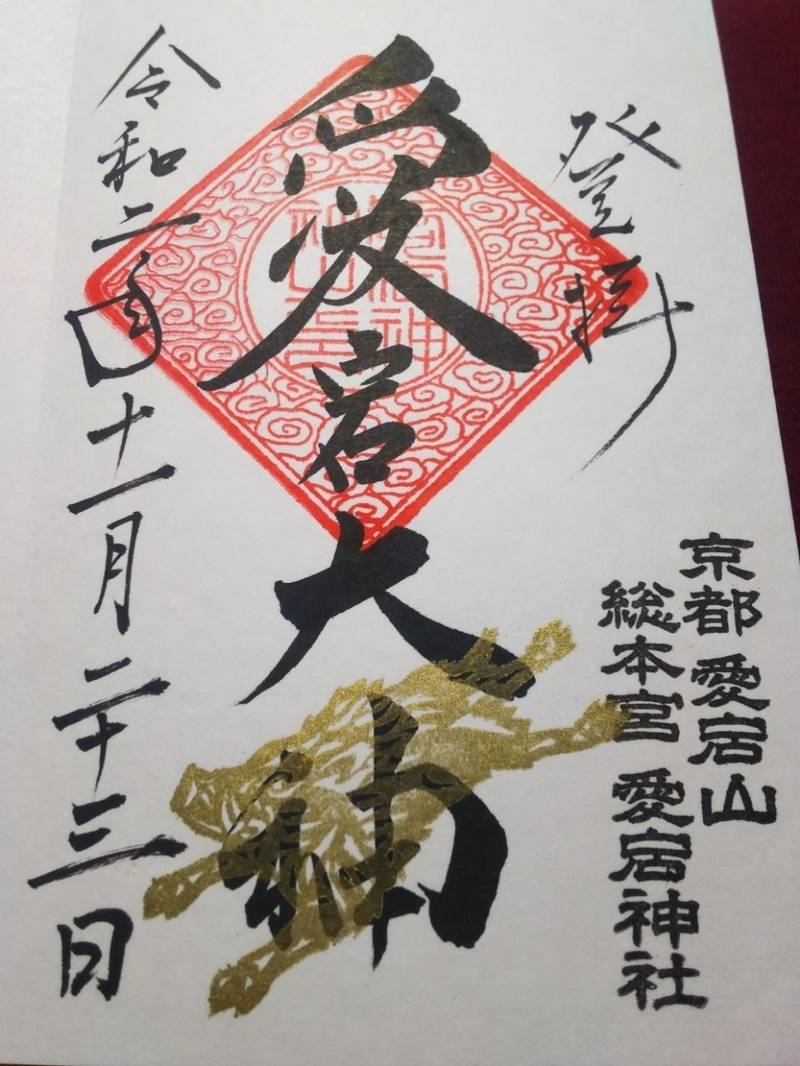 登拝
京都 愛宕山
総本宮 愛宕神社
愛宕大神
令和二年十一月二十三日